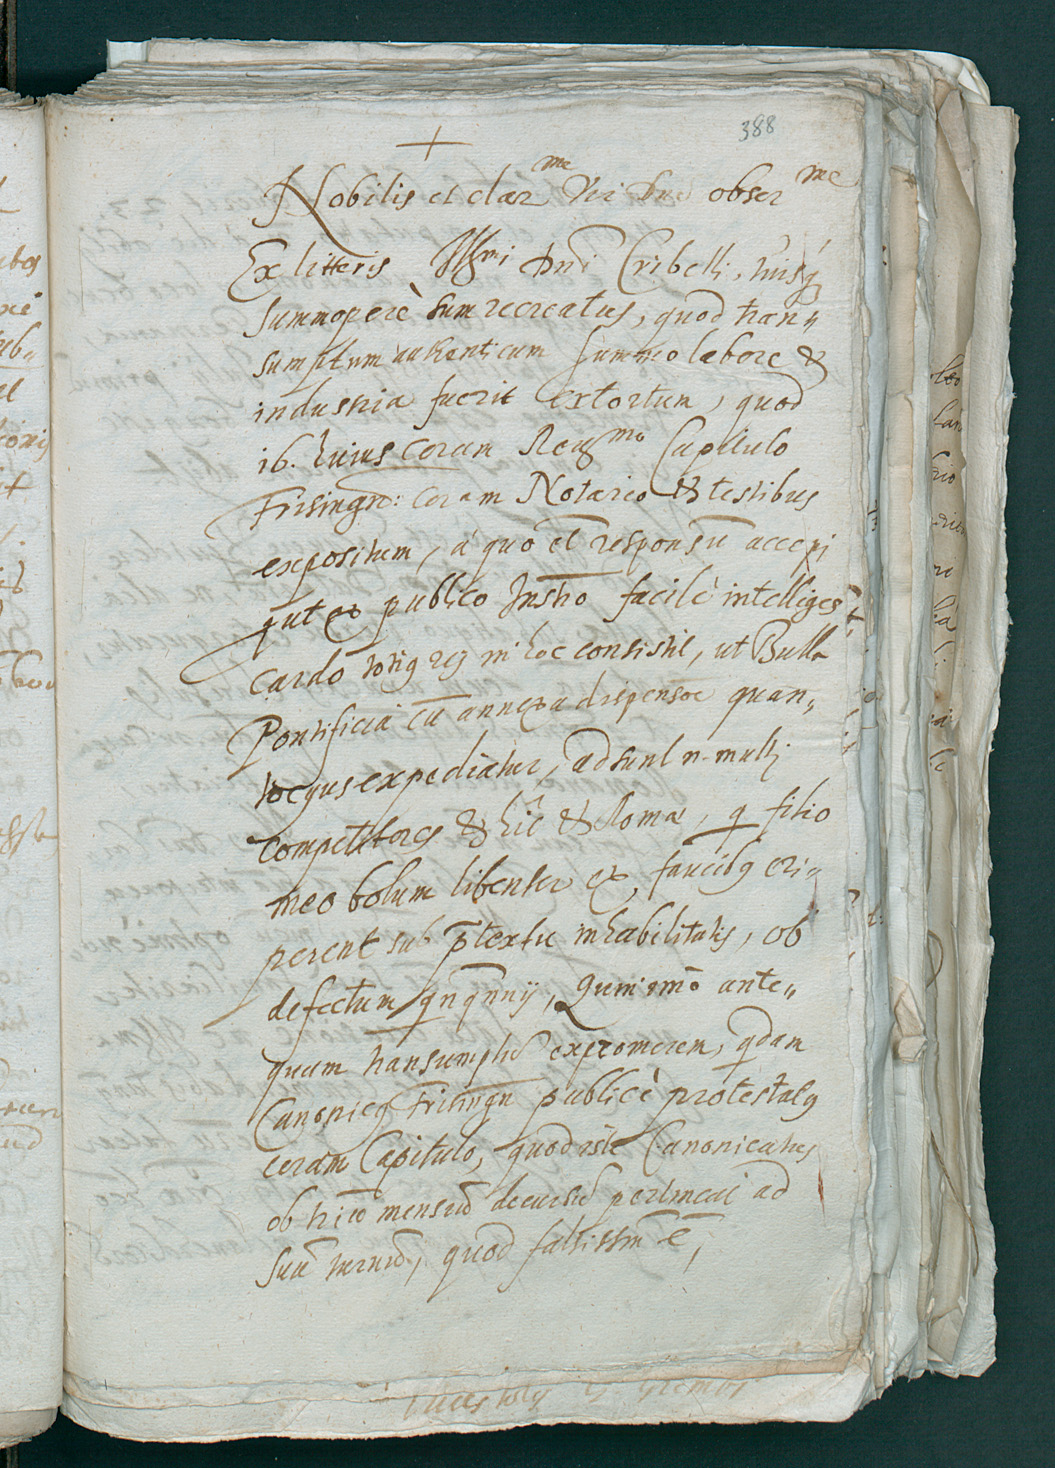 388
+
Nobilis et clar me Vir Dne obser me
Ex litteris Illmi Dni Cribelli, huiusq
summoperè sum recreatus, quod tran„
sumptum autenticum summo labore &
industria fuerit extortum, quod
16. huius coram Reu mo Capitulo
Frisingn: coram Notario & testibus
expositum, à quo et responsū accepi
put ex publico Instrō facilè intelliges
Cardo totiq rej in hoc consistit, ut Bulla
Pontificia cū annexa dispensōe quan„
tocyus expediatur, adsunt n. multj
competitores & hîc & Romæ, q filio
meo bolum libenter ex faucibq eri„
perent sub p̄textu inhabilitatis, ob
defectum qnqnnij, Quinimō ante„
quam transumptū expromerem, qdam
Canonicq Frisingn publicè protestatq
coram Capitulo, quod iste Canonicatus
ob triū mensiū decursū pertineat ad
suū turnū, quod falsissm̄ ē,